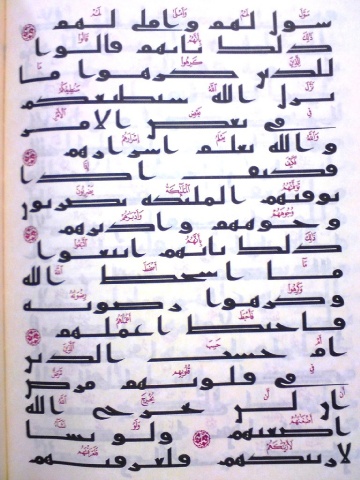 سول لهم واملى لهم
ذلك بانهم قالوا
للذين كرهوا ما
نزل الله سنطيعكم
فى بعض الامر
والله يعلم اسرارهم
فكيف اذا
توفتهم الملئكة يضربون
وجوههم وادبرهم
ذلك بانهم اتبعوا
ما اسخط الله
وكرهوا رضونه
فاحبط اعملهم
ام حسب الذين
فى قلوبهم مرض
ان لن يخرج الله
اضغنهم ولو نشا
لارينكهم فلعرفتهم